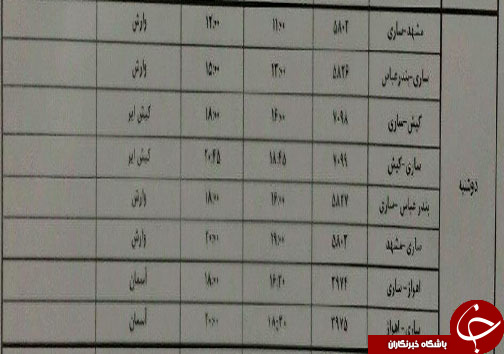 دوشنبه
مشهد-ساری ۵۸۰۲ ۱۱:۰۰ ۱۲:۰۰ وارش
ساری-بندرعباس ۵۸۲۶ ۱۳:۰۰ ۱۵:۰۰ وارش
کیش-ساری ۷۰۹۸ ۱۶:۰۰ ۱۸:۰۰ کیش ایر
ساری-کیش ۷۰۹۹ ۱۸:۴۵ ۲۰:۴۵ کیش ایر
بندرعباس-ساری ۵۸۲۷ ۱۶:۰۰ ۱۸:۰۰ وارش
ساری-مشهد ۵۸۰۳ ۱۹:۰۰ ۲۰:۰۰ وارش
اهواز-ساری ۳۹۷۴ ۱۶:۳۰ ۱۸:۰۰ آسمان
ساری-اهواز ۳۹۷۵ ۱۸:۳۰ ۲۰:۰۰ آسمان
باشگاه خبرنگاران